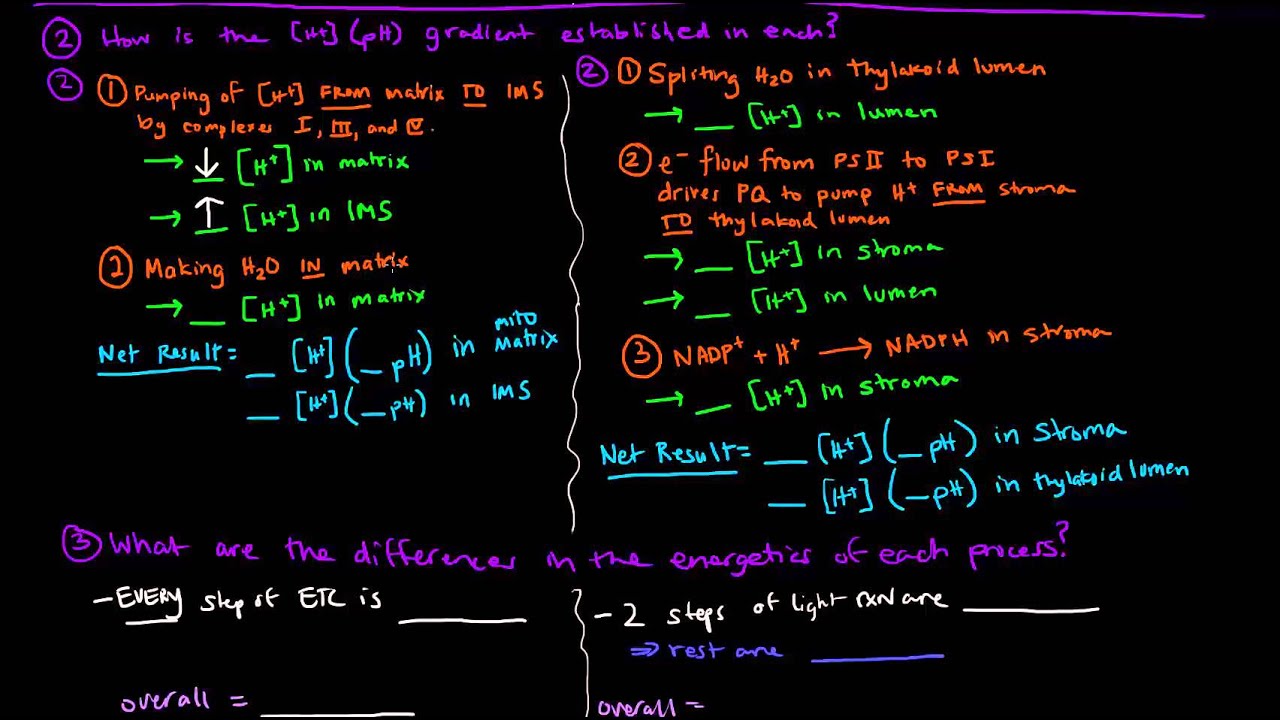 ② How is the [H+] (pH) gradient established in each?
②
① Pumping of [H+] FROM matrix TO IMS
by complexes I, III, and IV.
→ ↓ [H+] in matrix
→ ↑ [H+] in IMS
② Making H2O IN matrix
→ __ [H+] in matrix
Net Result = __ [H+] (_ pH) in mito matrix
__ [H+] (_ pH) in IMS
② ① Spliting H2O in thylakoid lumen
→ __ [H+] in lumen
② e- flow from PSII to PSI
drives PQ to pump H+ FROM stroma
TO thylakoid lumen
→ __ [H+] in stroma
→ __ [H+] in lumen
③ NADP+ + H+ → NADPH in stroma
→ __ [H+] in stroma
Net Result = __ [H+] (_ pH) in stroma
__ [H+] (_ pH) in thylakoid lumen
③ What are the differences in the energetics of each process?
- EVERY step of ETC is ______
overall = ______
- 2 steps of light rxn are ______
⇒ rest are ______
overall =